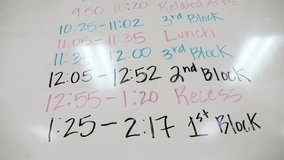 9:50-10:20 Related Arts
10:25-11:02 3rd Block
11:05-11:35 Lunch
12:00 3rd Block
12:05-12:52 2nd Block
12:55-1:20 Recess
1:25-2:17 1st Block